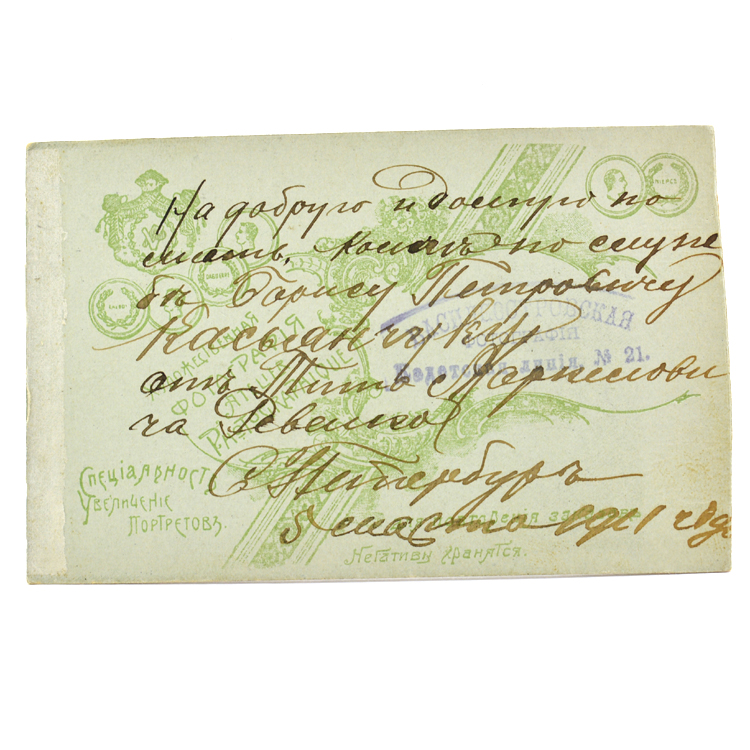 На добрую и долгую по
мять. Колегъ по служ
бѣ Борису Петровичу
Касьянчуку
отъ Тита Корнилови
ча Ревенко
С Петербургъ
5 марта 1911 года
ВАСИЛЕОСТРОВСКАЯ
ФОТОГРАФІЯ
линія, № 21.
ФОТОГРАФІЯ
СПЕЦІАЛЬНОСТЬ
УВЕЛИЧЕНІЕ
ПОРТРЕТОВЪ.
НЕГАТИВЫ ХРАНЯТСЯ.